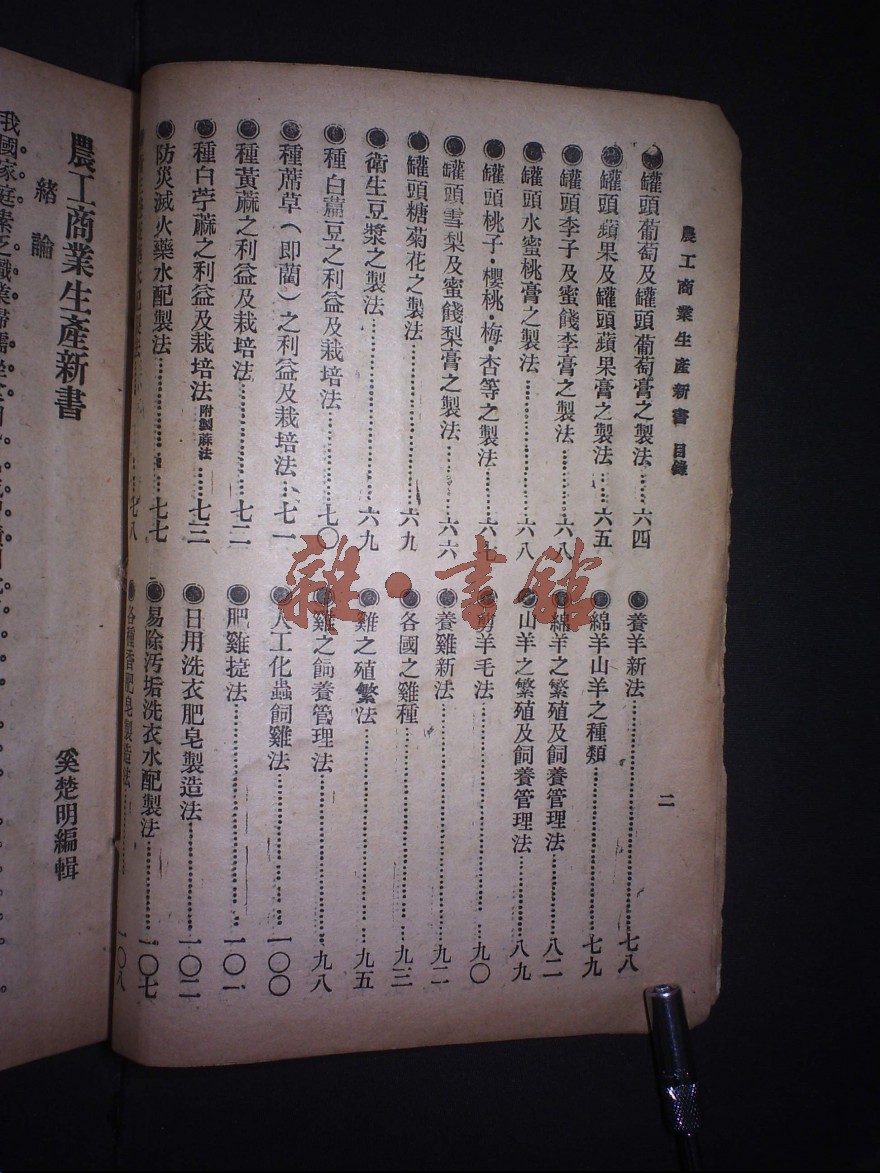 農工商業生產新書 目錄
二
●罐頭葡萄及罐頭葡萄膏之製法……六四
●罐頭蘋果及罐頭蘋果膏之製法……六五
●罐頭李子及蜜餞李膏之製法……六八
●罐頭水蜜桃膏之製法……六八
●罐頭桃子·櫻桃·梅·杏等之製法……六七
●罐頭雪梨及蜜餞梨膏之製法……六六
●罐頭糖菊花之製法……六九
●衛生豆漿之製法……六九
●種白藊豆之利益及栽培法……七〇
●種蓆草(即藺)之利益及栽培法……七一
●種黃蔴之利益及栽培法……七二
●種白苧蔴之利益及栽培法附製蔴法……七三
●防災滅火藥水配製法……七七
七八
●養羊新法……七八
●綿羊山羊之種類……七九
●綿羊之繁殖及飼養管理法……八二
●山羊之繁殖及飼養管理法……八九
●剪羊毛法……九〇
●養雞新法……九二
●各國之雞種……九三
●雞之殖繁法……九五
●雞之飼養管理法……九八
●人工化蟲飼雞法……一〇〇
●肥雞㨗法……一〇一
●日用洗衣肥皂製造法……一〇二
●易除汚垢洗衣水配製法……一〇七
●各種香肥皂製造法……一〇八
農工商業生產新書
奚楚明編輯
緒論
我國家庭素乏職業
雜·書館